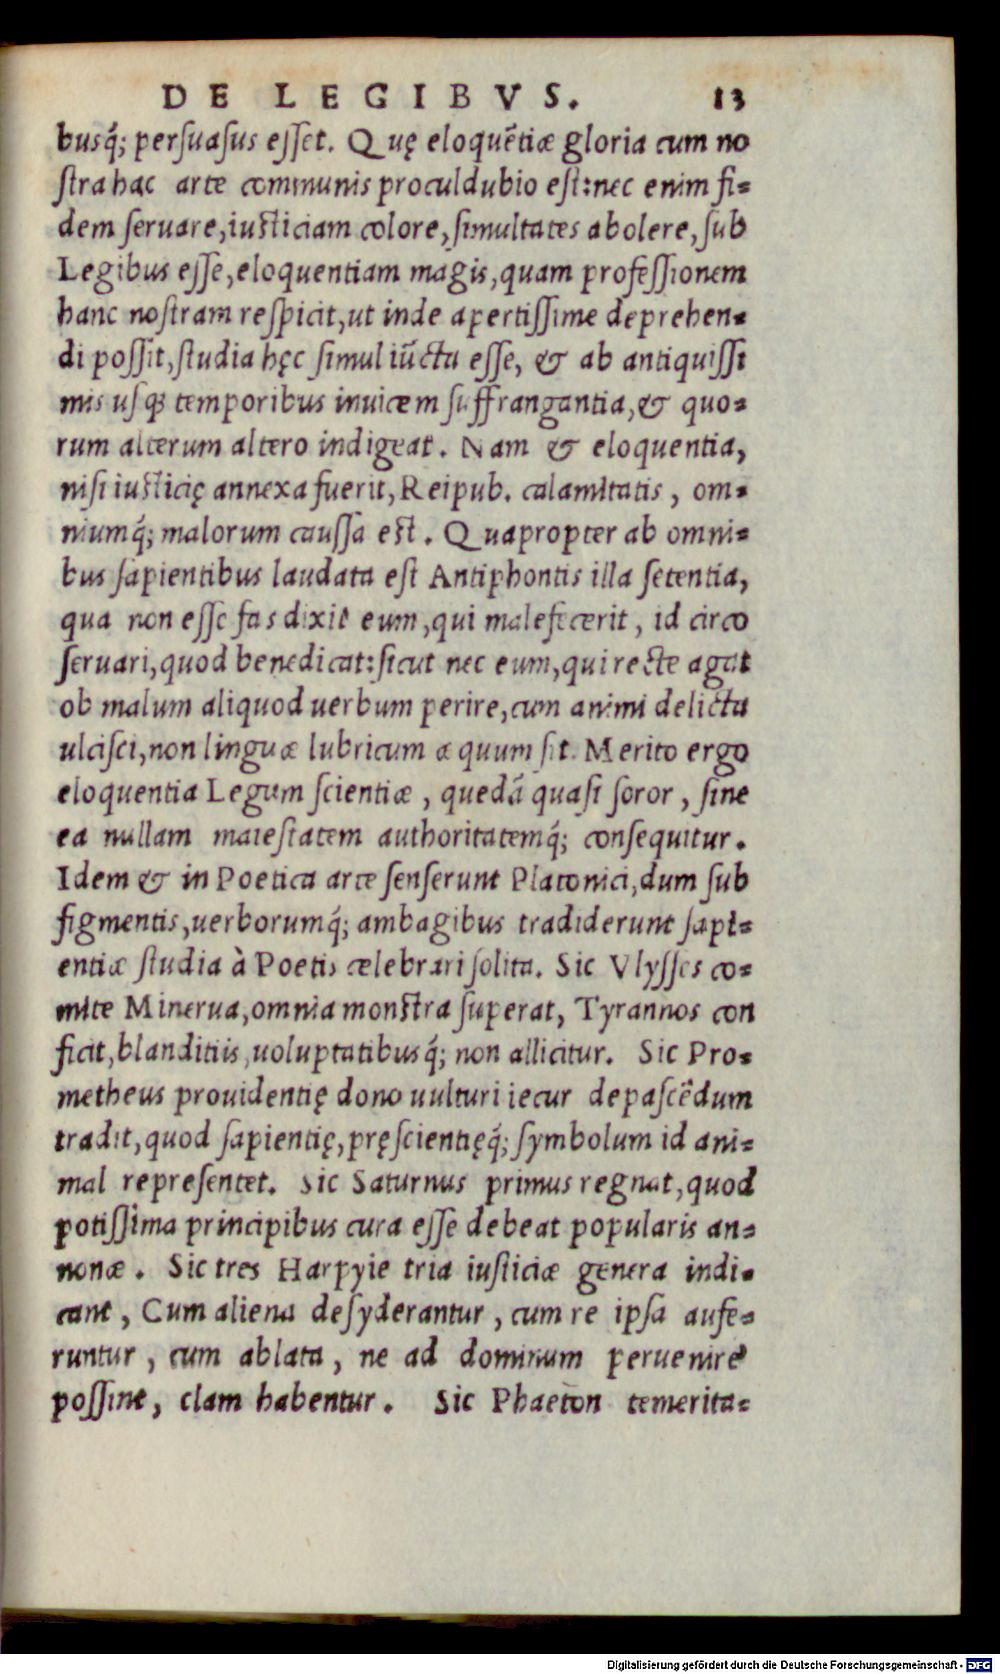 DE LEGIBVS. 13
busq́; persuasus esset. Quę eloquẽtiæ gloria cum no
stra hac arte communis proculdubio est: nec enim fi-
dem seruare, iusticiam colore, simultates abolere, sub
Legibus esse, eloquentiam magis, quam professionem
hanc nostram respicit, ut inde apertissime deprehen-
di possit, studia hęc simul iũcta esse, & ab antiquissi
mis usqꝫ temporibus inuicem suffrangantia, & quo-
rum alterum altero indigeat. Nam & eloquentia,
nisi iusticię annexa fuerit, Reipub. calamitatis, om-
niumq́; malorum caussa est. Quapropter ab omni-
bus sapientibus laudata est Antiphontis illa setentia,
qua non esse fas dixit eum, qui malefecerit, id circo
seruari, quod benedicat: sicut nec eum, qui recte agat
ob malum aliquod uerbum perire, cum animi delicta
ulcisci, non linguæ lubricum æquum sit. Merito ergo
eloquentia Legum scientiæ, quedã quasi soror, sine
ea nullam maiestatem authoritatemq́; consequitur.
Idem & in Poetica arte senserunt Platonici, dum sub
figmentis, uerborumq́; ambagibus tradiderunt sapi-
entiæ studia à Poetis celebrari solita. Sic Vlysses co-
mite Minerua, omnia monstra superat, Tyrannos con
ficit, blanditiis, uoluptatibusq́; non allicitur. Sic Pro-
metheus prouidentię dono uulturi iecur depascẽdum
tradit, quod sapientię, pręscientięq́; symbolum id ani-
mal representet. Sic Saturnus primus regnat, quod
potissima principibus cura esse debeat popularis an-
nonæ. Sic tres Harpyie tria iusticiæ genera indi-
cant, Cum aliena desyderantur, cum re ipsa aufe-
runtur, cum ablata, ne ad dominum peruenire
possint, clam habentur. Sic Phaeton temerita-
Digitalisierung gefördert durch die Deutsche Forschungsgemeinschaft - DFG